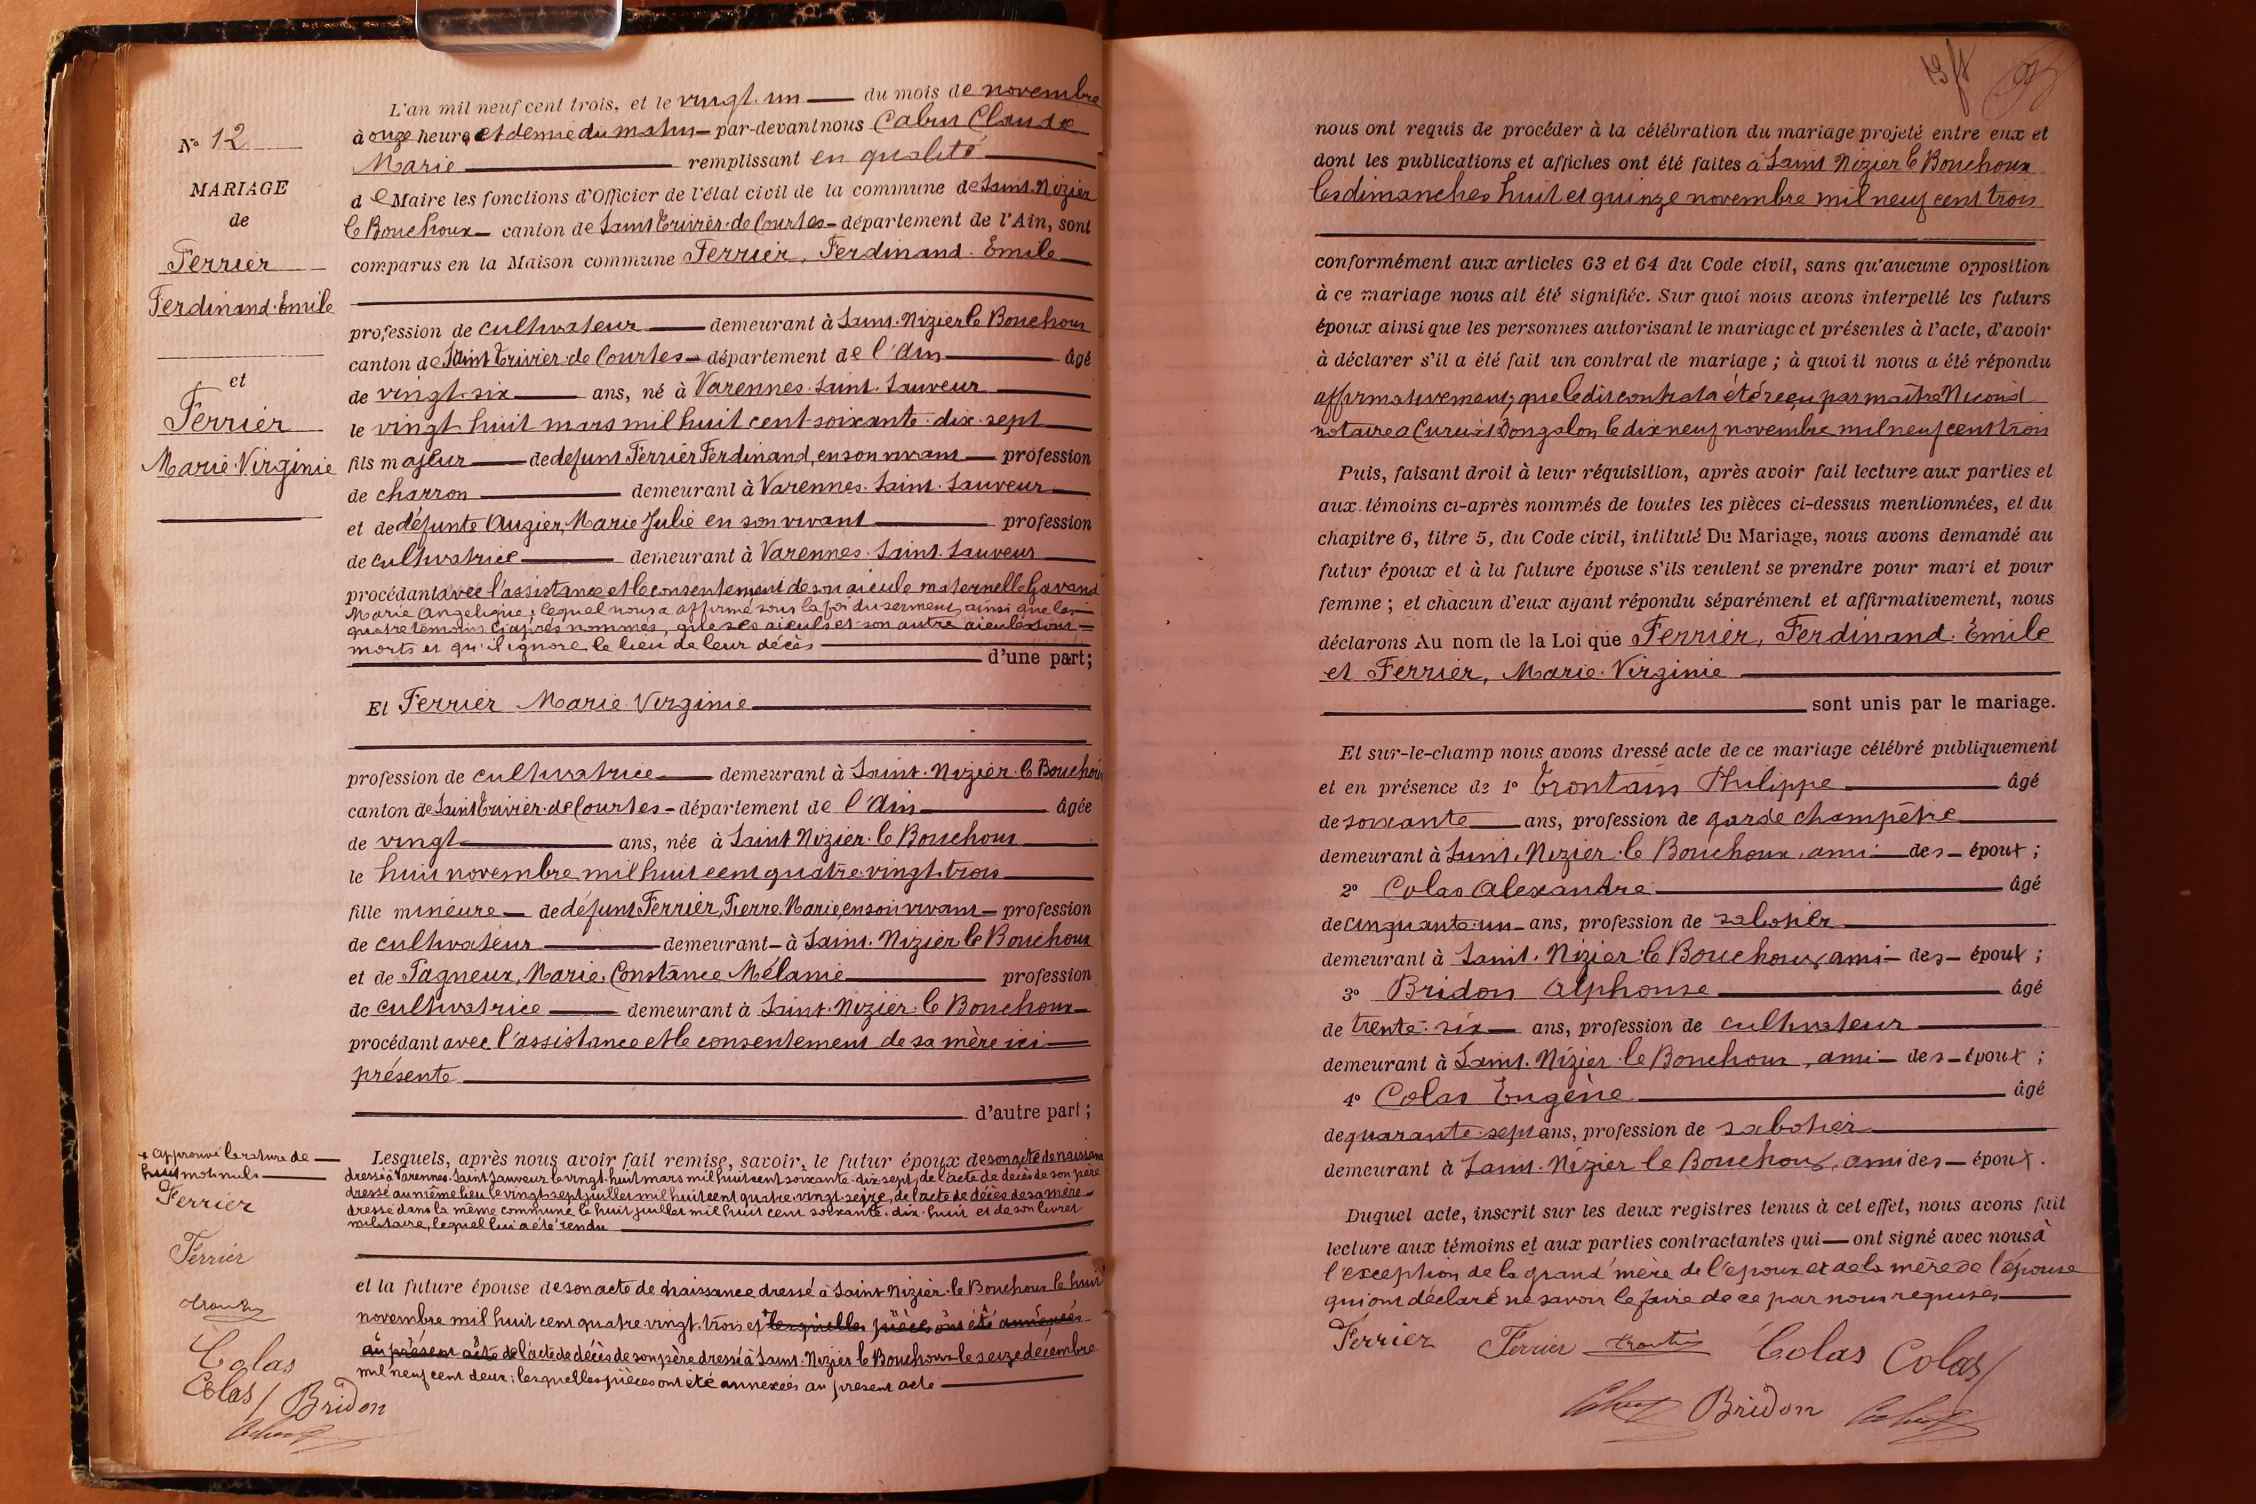 N° 12
MARIAGE
de
Ferrier
Ferdinand-Emile
et
Ferrier
Marie-Virginie
L'an mil neuf cent trois, et le vingt-un du mois de novembre
à onze heures et demie du matin par-devant nous Cabut Claude
Marie remplissant en qualité
de Maire les fonctions d'Officier de l'état civil de la commune de Saint-Nizier
le Bouchoux canton de Saint Trivier-de Courtes département de l'Ain, sont
comparus en la Maison commune Ferrier, Ferdinand-Emile
profession de cultivateur demeurant à Saint-Nizier le Bouchoux
canton de Saint Trivier-de Courtes département de l'Ain âgé
de vingt-six ans, né à Varennes-Saint-Sauveur
le vingt-huit mars mil huit cent soixante-dix-sept
fils majeur de défunt Ferrier Ferdinand, en son vivant profession
de charron demeurant à Varennes-Saint-Sauveur
et de défunte Auzier, Marie Julie en son vivant profession
de cultivatrice demeurant à Varennes-Saint-Sauveur
procédant avec l'assistance et le consentement de son aieule maternelle Gavand
Marie Angelique, lequel nous a affirmé sous la foi du serment, ainsi que les
quatre témoins ci-après nommés, que ses aieuls et son autre aieule sont
morts et qu'il ignore le lieu de leur décès
d'une part;
Et Ferrier Marie-Virginie
profession de cultivatrice demeurant à Saint-Nizier-le Bouchoux
canton de Saint Trivier-de Courtes département de l'Ain âgée
de vingt ans, née à Saint Nizier-le Bouchoux
le huit novembre mil huit cent quatre-vingt-trois
fille mineure de défunt Ferrier, Pierre Marie, en son vivant profession
de cultivateur demeurant à Saint-Nizier le Bouchoux
et de Pagneux, Marie, Constance Mélanie profession
de cultivatrice demeurant à Saint-Nizier-le Bouchoux
procédant avec l'assistance et le consentement de sa mère ici
présente
d'autre part;
+ approuvé la rature de
huit mots nuls
Ferrier
Ferrier
Colas
Colas
Bridon
Lesquels, après nous avoir fait remise, savoir, le futur époux de son acte de naissance
dressé à Varennes-Saint-Sauveur le vingt-huit mars mil huit cent soixante-dix-sept, de l'acte de décès de son père
dressé au même lieu le vingt-sept juillet mil huit cent quatre-vingt-seize, de l'acte de décès de sa mère
dressé dans la même commune le huit juillet mil huit cent soixante-dix-huit et de son livret
militaire, lequel lui a été rendu
et la future épouse de son acte de naissance dressé à Saint-Nizier-le Bouchoux le huit
novembre mil huit cent quatre vingt-trois et lesquelles pièces ont été annexées
au présent acte de l'acte de décès de son père dressé à Saint-Nizier le Bouchoux le seize décembre
mil neuf cent deux; lesquelles pièces ont été annexées au présent acte
nous ont requis de procéder à la célébration du mariage projeté entre eux et
dont les publications et affiches ont été faites à Saint Nizier le Bouchoux
les dimanches huit et quinze novembre mil neuf cent trois
conformément aux articles 63 et 64 du Code civil, sans qu'aucune opposition
à ce mariage nous ait été signifiée. Sur quoi nous avons interpellé les futurs
époux ainsi que les personnes autorisant le mariage et présentes à l'acte, d'avoir
à déclarer s'il a été fait un contrat de mariage; à quoi il nous a été répondu
affirmativement, que le dit contrat a été reçu par maître
notaire à le dix neuf novembre mil neuf cent trois
Puis, faisant droit à leur réquisition, après avoir fait lecture aux parties et
aux témoins ci-après nommés de toutes les pièces ci-dessus mentionnées, et du
chapitre 6, titre 5, du Code civil, intitulé Du Mariage, nous avons demandé au
futur époux et à la future épouse s'ils veulent se prendre pour mari et pour
femme; et chacun d'eux ayant répondu séparément et affirmativement, nous
déclarons Au nom de la Loi que Ferrier, Ferdinand-Emile
et Ferrier, Marie-Virginie
sont unis par le mariage.
Et sur-le-champ nous avons dressé acte de ce mariage célébré publiquement
et en présence de 1° Trontain Philippe âgé
de soixante ans, profession de garde champêtre
demeurant à Saint-Nizier-le Bouchoux, ami des époux;
2° Colas Alexandre âgé
de cinquante-un ans, profession de sabotier
demeurant à Saint-Nizier-le Bouchoux, ami des époux;
3° Bridon Alphonse âgé
de trente-six ans, profession de cultivateur
demeurant à Saint-Nizier-le Bouchoux, ami des époux;
4° Colas Eugène âgé
de quarante-sept ans, profession de sabotier
demeurant à Saint-Nizier le Bouchoux, ami des époux.
Duquel acte, inscrit sur les deux registres tenus à cet effet, nous avons fait
lecture aux témoins et aux parties contractantes qui ont signé avec nous à
l'exception de la grand'mère de l'époux et de la mère de l'épouse
qui ont déclaré ne savoir le faire de ce par nous requises
Ferrier Ferrier Colas Colas
Bridon